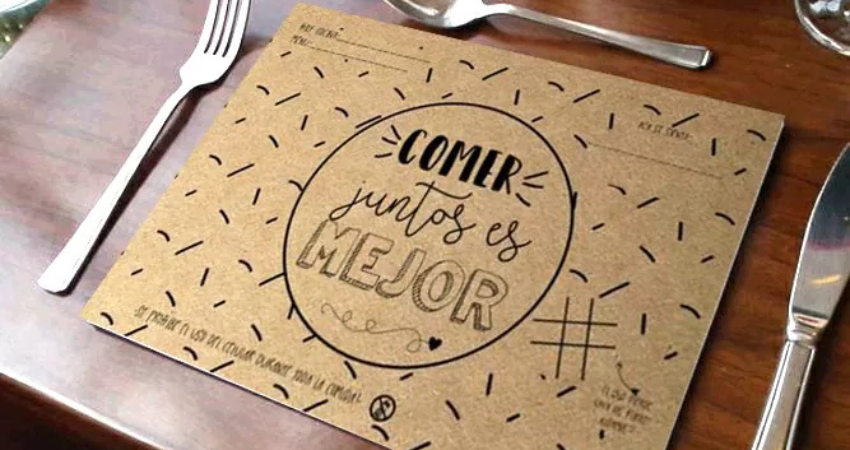 HOY COCINA:
MENÚ:
HOY SE SIENTA:
COMER
juntos es
MEJOR
SE PROHIBE EL USO DEL CELULAR DURANTE TODA LA COMIDA!
EL QUE PIERDE